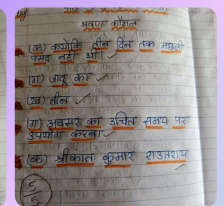 श्रवण कौशल
(क) क्योंकि तीन दिन तक मछली
पसंद नहीं थी।
(ग) जादू का
(ख) तीन
(ग) अवसर का उचित समय पर
उपयोग करना
(क) श्रीकांत कुमार राउतराय
5
5